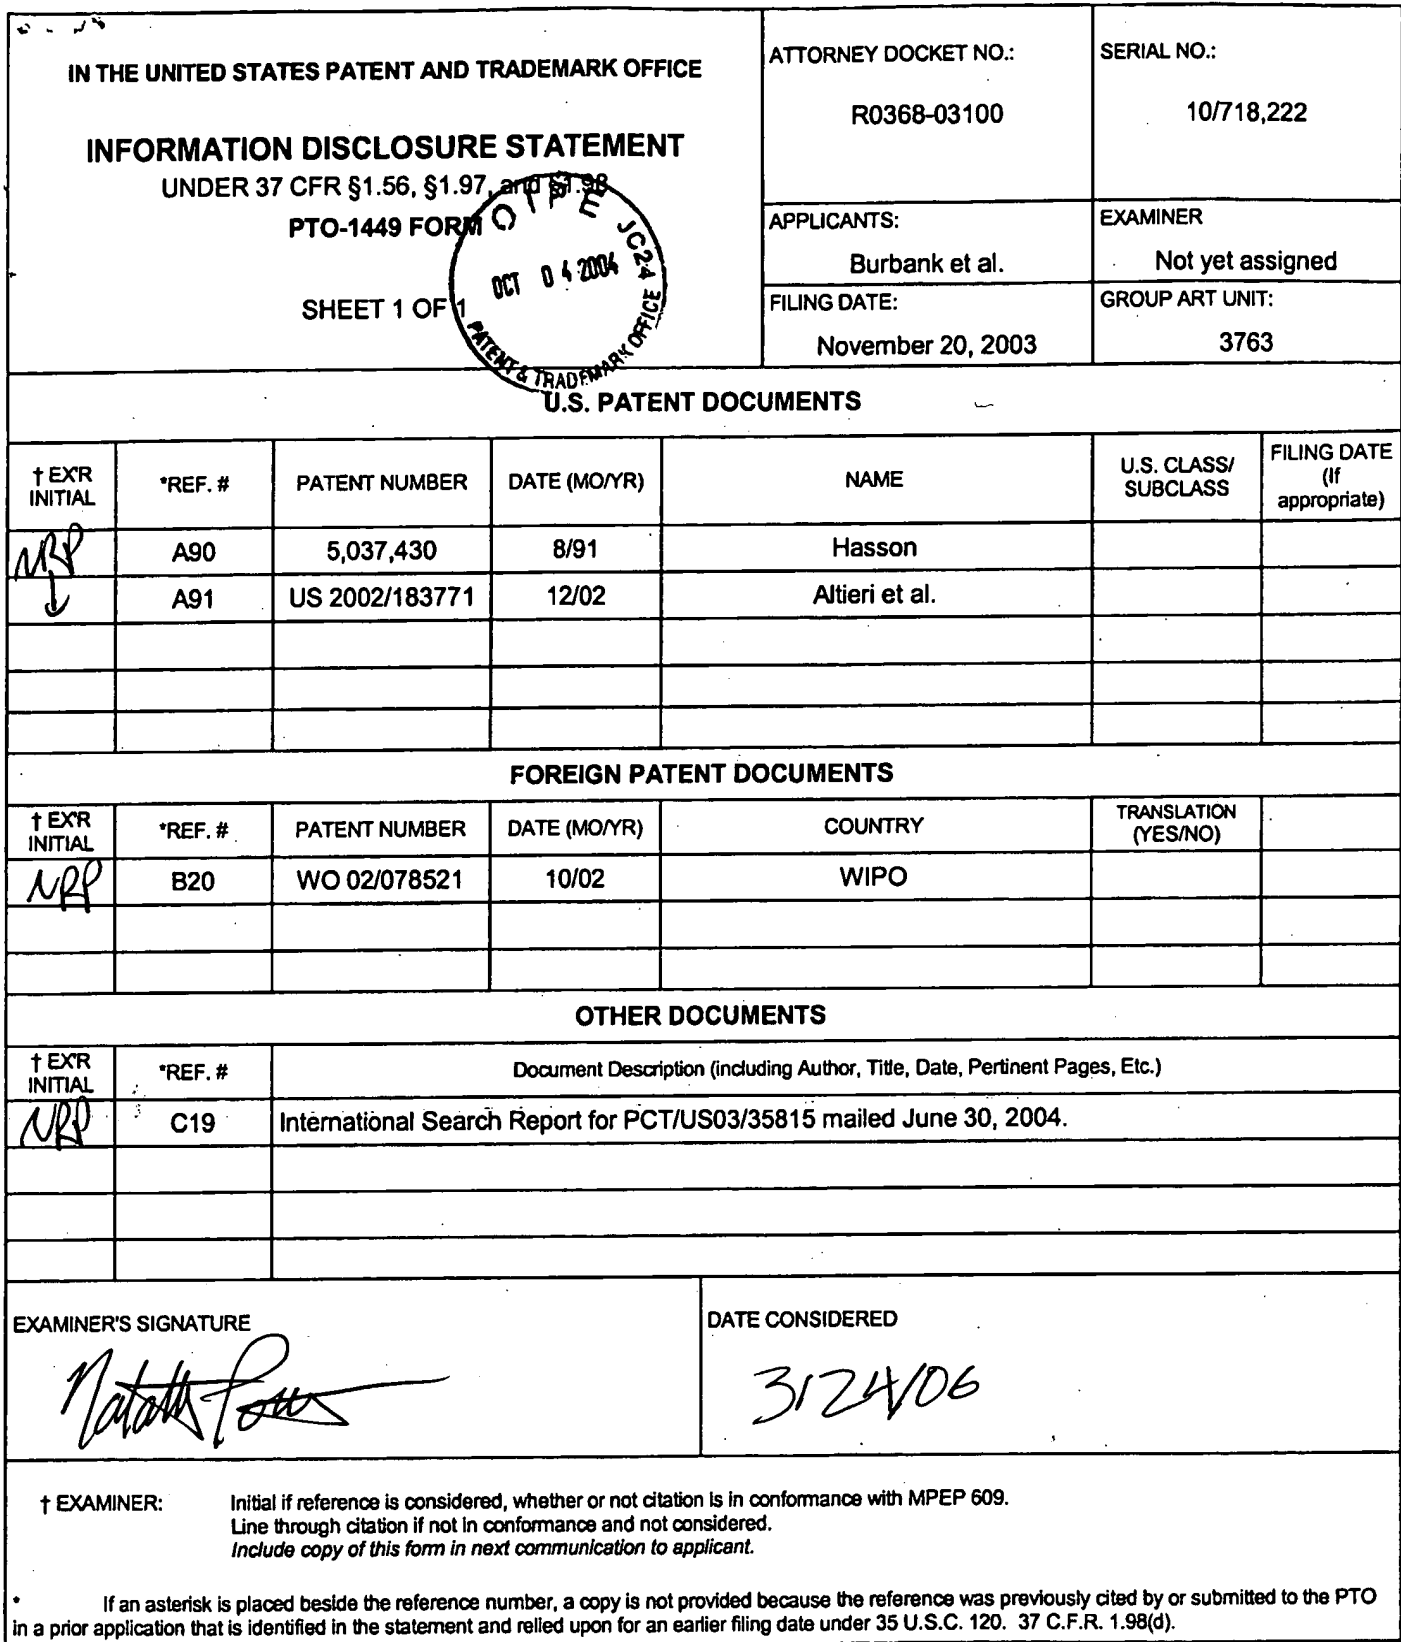 IN THE UNITED STATES PATENT AND TRADEMARK OFFICE
INFORMATION DISCLOSURE STATEMENT
UNDER 37 CFR §1.56, §1.97, and §1.98
PTO-1449 FORM
SHEET 1 OF 1
OIPE JC24
OCT 04 2004
PATENT & TRADEMARK OFFICE
ATTORNEY DOCKET NO.:
R0368-03100
SERIAL NO.:
10/718,222
APPLICANTS:
Burbank et al.
EXAMINER
Not yet assigned
FILING DATE:
November 20, 2003
GROUP ART UNIT:
3763
U.S. PATENT DOCUMENTS
† EX'R INITIAL *REF. # PATENT NUMBER DATE (MO/YR) NAME U.S. CLASS/ SUBCLASS FILING DATE (If appropriate)
NRP A90 5,037,430 8/91 Hasson
A91 US 2002/183771 12/02 Altieri et al.
FOREIGN PATENT DOCUMENTS
† EX'R INITIAL *REF. # PATENT NUMBER DATE (MO/YR) COUNTRY TRANSLATION (YES/NO)
NRP B20 WO 02/078521 10/02 WIPO
OTHER DOCUMENTS
† EX'R INITIAL *REF. # Document Description (including Author, Title, Date, Pertinent Pages, Etc.)
NRP C19 International Search Report for PCT/US03/35815 mailed June 30, 2004.
EXAMINER'S SIGNATURE
DATE CONSIDERED
3/24/06
† EXAMINER: Initial if reference is considered, whether or not citation is in conformance with MPEP 609.
Line through citation if not in conformance and not considered.
Include copy of this form in next communication to applicant.
* If an asterisk is placed beside the reference number, a copy is not provided because the reference was previously cited by or submitted to the PTO
in a prior application that is identified in the statement and relied upon for an earlier filing date under 35 U.S.C. 120. 37 C.F.R. 1.98(d).